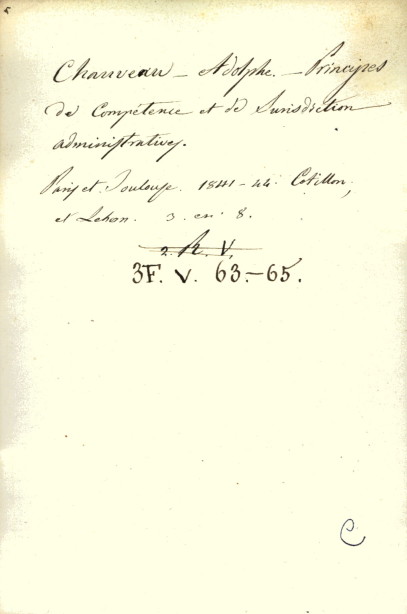 Chauveau – Adolphe. – Principes
de Compétence et de Jurisdiction
administratives.
Paris et Toulouse. 1841-44. Cotillon,
et Lebon. 3. en 8.
2. R. V.
3F. V. 63.-65.
C